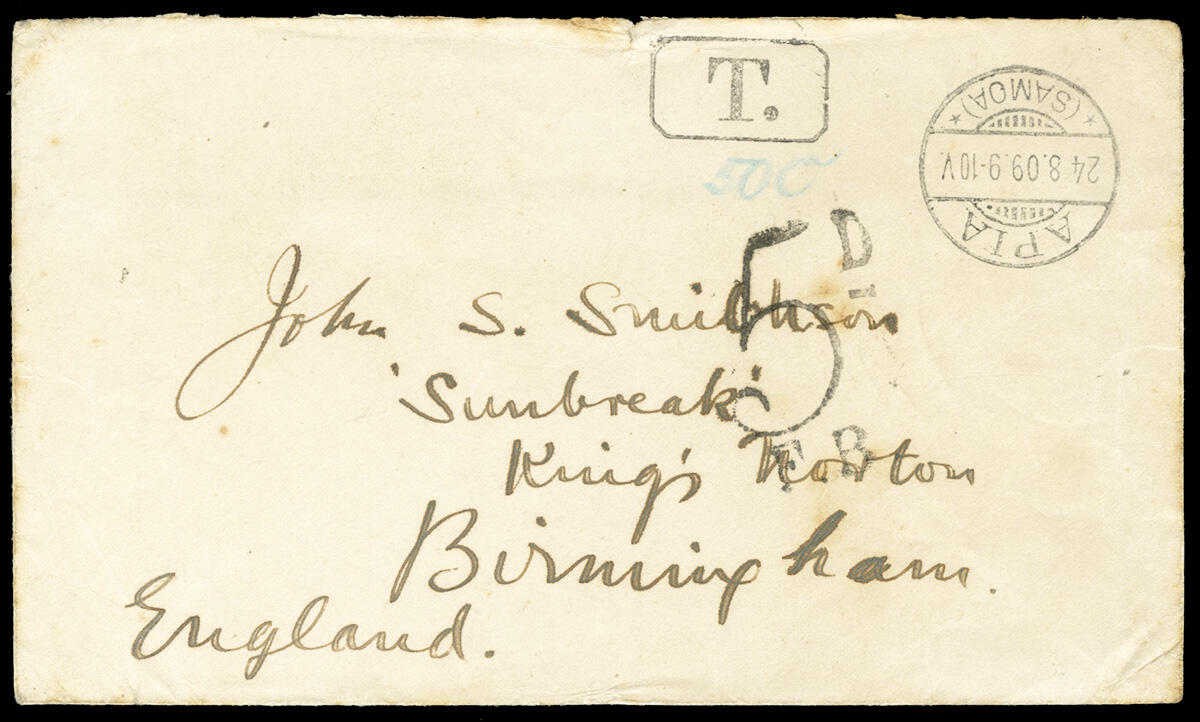 T.
50c
APIA
24.8.09.9-10V.
*(SAMOA)*
5D
F.B
John S. Smithson
'Sunbreak'
King's Norton
Birmingham.
England.